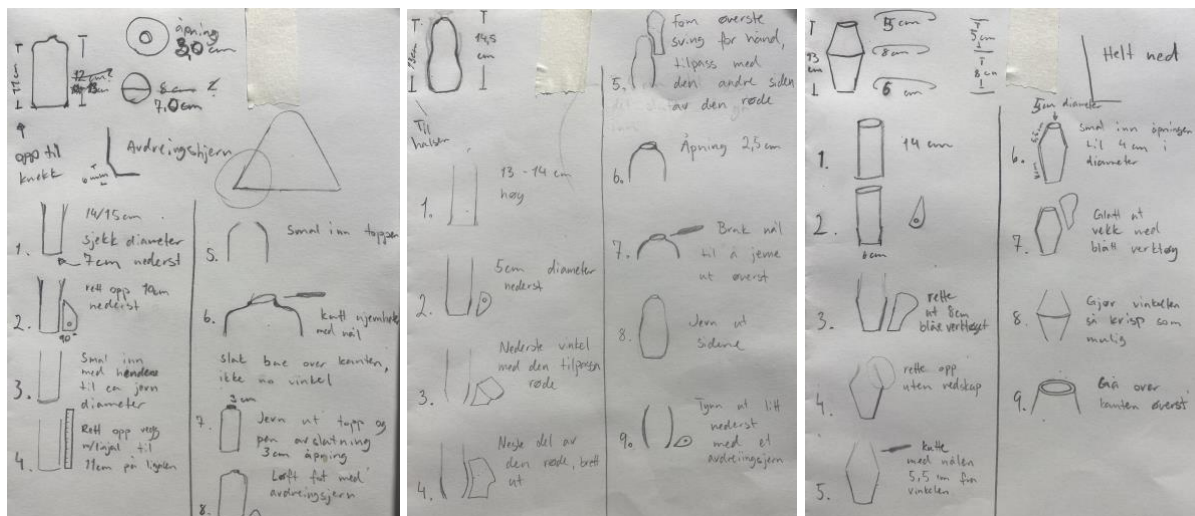 åpning
3,0 cm
11cm
12 cm?
13
8 cm ?
7,0cm
opp til
knekk
6mm
Avdreingshjern
1.
14/15cm
sjekk diameter
7cm nederst
2.
rett opp 10cm
nederst
90°
3.
Smal inn
med hendene
til en jevn
diameter
4.
Rett opp vegg
m/linjal til
11cm på linjalen
5.
Smal inn toppen
6.
kutt ujevnheter
med nål
slak bue over kanten,
ikke no vinkel
3 cm
7.
Jevn ut topp og
pen avslutning
3cm åpning
8.
Løft fot med
avdreingsjern
13cm
14,5
cm
Til
halsen
1.
13 - 14 cm
høy
2.
5cm diameter
nederst
3.
Nederste vinkel
med den tilpassa
røde
4.
Neste del av
den røde, brett
ut
5.
form øverste
sving for hånd,
tilpass med
den andre siden
av den røde
6.
Åpning 2,5 cm
7.
Bruk nål
til å jevne
ut øverst
8.
Jevn ut
sidene
9.
Tynn ut litt
nederst
med et
avdreiingsjern
13
cm
5 cm
8 cm
6 cm
5 cm
8 cm
Helt ned
1.
14 cm
2.
6cm
3.
rette
ut 8cm
blåe verktøyet
4.
rette opp
uten redskap
5.
kutte
med nålen
5,5 cm fra
vinkelen
5cm diameter
6.
smal inn åpningen
til 4 cm i
diameter
7.
Glatt ut
vekk med
blått verktøy
8.
Gjør vinkelen
så krisp som
mulig
9.
Gå over
kanten øverst